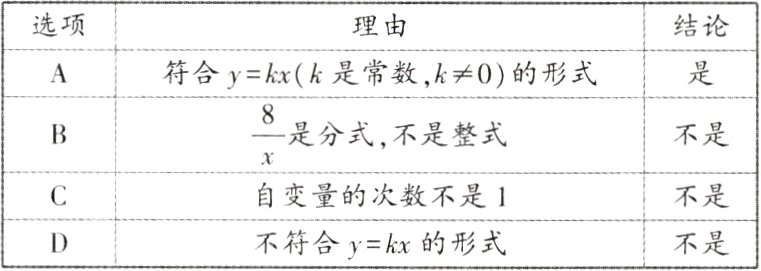 选项 理由 结论
A 符合 y=kx(k 是常数,k≠0)的形式 是
B 8/x是分式,不是整式 不是
C 自变量的次数不是 1 不是
D 不符合 y=kx 的形式 不是